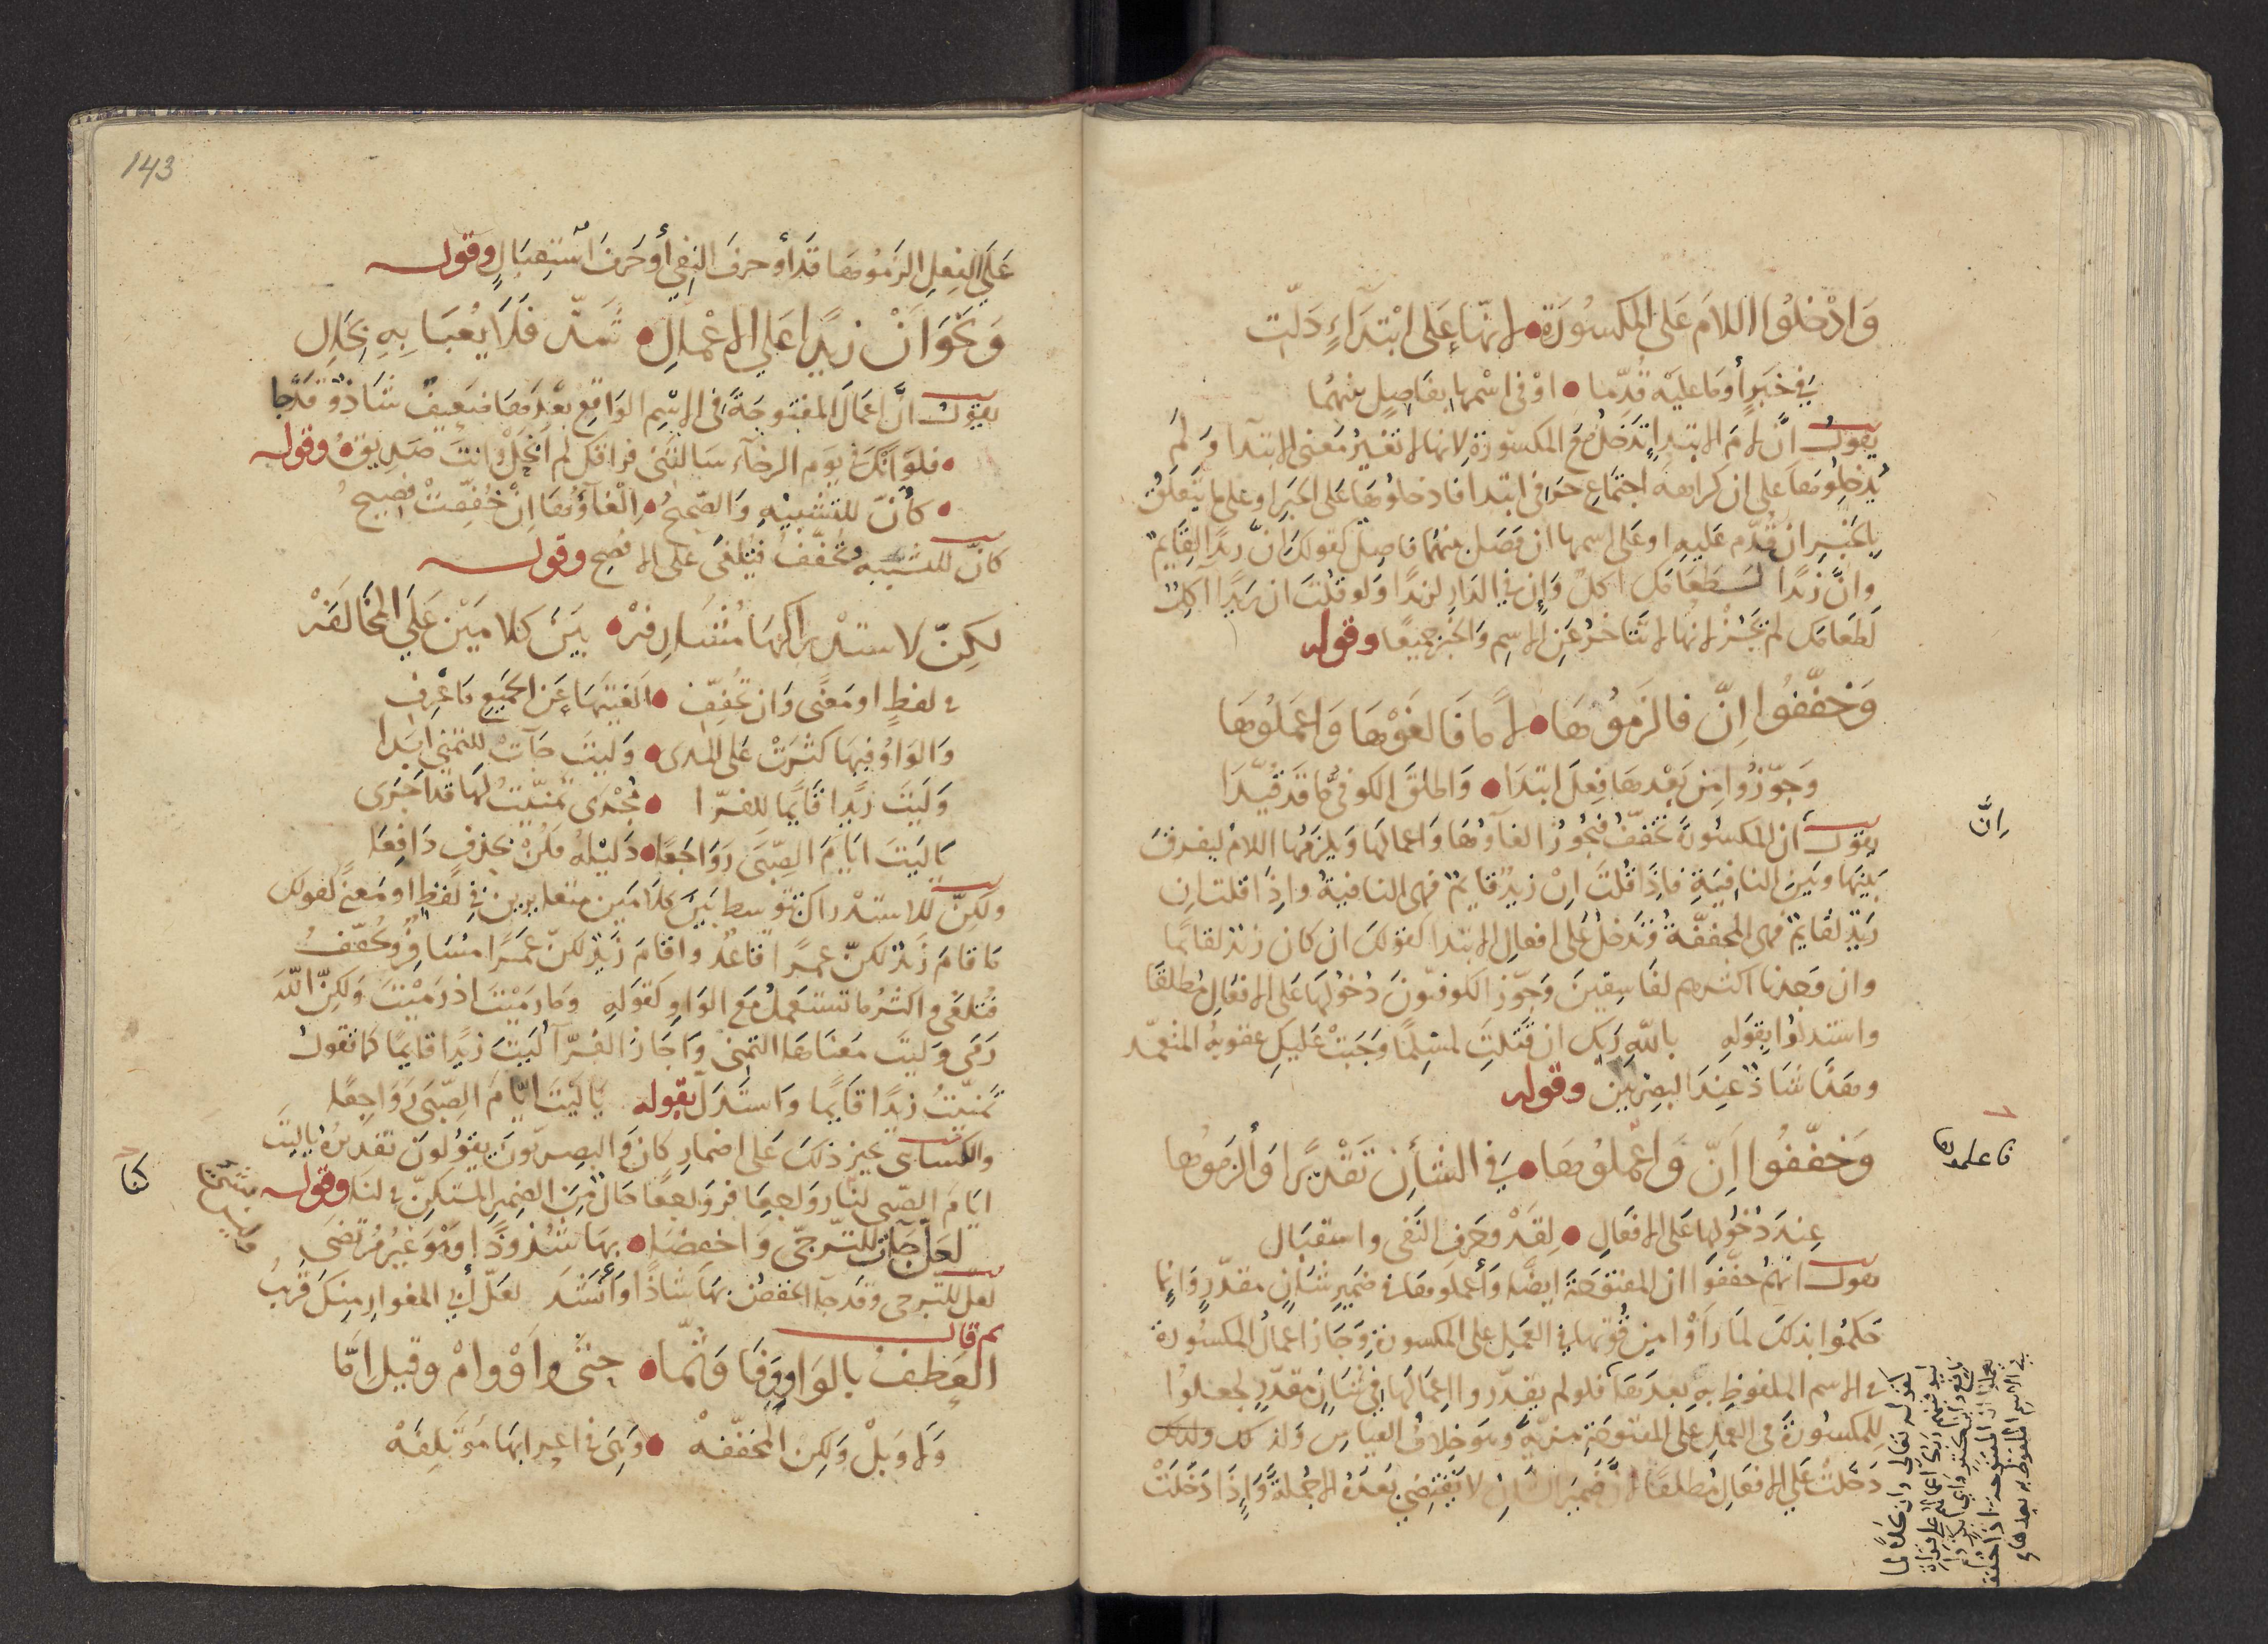 وَادْخلُوا اللامَ عَلى المكسُورَة • لانهَا عَلى ابْتدَاءٍ دَلّت
في خبَرٍ أوْمَا عليَه قُدّمَا • اوْ فى اسْمهَا بفَاصِلٍ بينهُمَا
يقولُ انَّ لامَ الابتدا تدَخلُ مَعَ المكسوُرَة لانهَا لا تغيرُ مَعنى الابتدآ وَلمَ
يُدخلُوهَا عَلى ان كراهة اجتماع حرفى ابتدا فادخلوُهَا عَلى الخبَرِ او عَلى مَا يتَعلقُ
بالخبَرِ ان قُدّم عَليهِ او عَلى اسمهَا ان فصَل بينهُمَا فاصِل كقولكَ انَّ زيدًا لقَايمٌ
وانَّ زيدًا لطَعَامَك اكلٌ وَإن في الدَار لزيدًا وَلو قلتَ ان زيدًا آكلٌ
لطعَامَك لم يجُزْ لانهَا لا تتَاخرُ عَن الاسِم وَالخبَر جميعًا وقوله
وَخفّفُوا اِنّ فالزَموُهَا • لامًا فَالغَوْهَا وَاعمَلوُهَا
وَجوّزُوا مِن بَعْدهَا فِعلَ ابتدَا • وَاطلقَ الكوفىُّ مَا قَد قُيّدَا
اِنَّ
يقول ان المكسُورةَ تخفّفُ فيجُوزُ الغآوُهَا وَاعمالهَا وَيلزَمُها اللامُ ليفرقَ
بَينهَا وبَينَ النافِيَةِ فاِذَا قُلتَ اِنْ زيدٌ قايمٌ فهى النافيةُ واِذا قلت ان
زيدٌ لقَايمٌ فهى المخففّةُ وَتدَخلُ عَلى افعال الابتدا كقولكَ ان كان زيدٌ لقَايمًا
وان وَجدنا اكثرهم لفَاسِقينَ وَجوّزَ الكوفيّونَ دخُولهَا عَلى الافعَالِ مُطلقًا
واستدلوا بقَوله بالله رَبك ان قتَلتَ لمسْلمًا وَجَبتْ عَليكَ عقوبةُ المتعمّد
وهذَا شَاذٌ عِندَ البصريّين وقوله
فاعملوها
وَخفّفُوا اَنّ وَاعْملُوهَا • في الشأنِ تقَدْيرًا وَألزَموُها
عِندَ دُخُولهَا عَلى الافعَالِ • لِقَدْ وَحَرفِ النَفى واستقبَال
يقول انهُم خفّفوَا ان المفتوُحَة ايضًا وَأعملوهَا فى ضَمير شَانٍ مقدّرٍ وَانمَا
حَكمُوا بذلكَ لمَا رَأوْا مِن قُوّتهَا في العَمل عَلى المكسورةِ وَجَازَ اعمالُ المكسُورة
فى الاسم الملفوُظِ بهِ بعدَهَا فلو لم يقَدّروا اعمَالهَا في شَانٍ مقدّرٍ لجعلوُا
للمكسُورَة فى العمل عَلى المفتوُحَة مزيّة وَهو خلافُ القياس وَلذلك
دَخلتْ عَلى الافعَال مُطلقًا لانَّ ضَميرَ الشان لا يَقتضِي بعَدَهُ الا جملةً وَاِذَا دَخلتْ
كقوله تعالى وان كلًّا لما
في الاسم الملفوظ به بعدها
143
عَلى الفعِلِ الزَموُهَا قَد أوْ حرفَ النفي أوْ حَرفَ اسْتقبَالٍ وقوله
وَنحَوُ اَنْ زيدًا عَلي الاعْمالِ • شَذّ فلَا يُعبَا بِهِ بحَالِ
يقول انَّ اعمَالَ المفتوحَة فى الاسْم الوَاقع بعَدهَا ضَعيفٌ شَاذٌ قَد جا
• فلوَ انكَ فى يوَم الرخآء سَالتنَى فراقكَ لم أبخَلْ وانتَ صَديقُ • وقوله
• كأنّ للتشبيْهِ وَالصّحيحُ • اِلْغآوُهَا اِنْ خُفّفتْ فصِيحُ
كانّ للتشبيه تخفّفُ فتلغىَ عَلى الافصَح وقوله
لكِنّ لاستدْراكهَا مُشَارفَهْ • بيَنَ كَلامَيْن عَلَى المخَالفَهْ
فى لفظٍ او مَعنًى وَان تخُفّفْ • الغيتهَا عَن الجَميع مَا عُرف
وَالوَاوُ فيهَا كثرَتْ عَلى المَدى • وَليتَ جَآتْ للتمَنّي ابَدا
وَليَتَ زيدًا قَايمًا للفرّا • مجُرَى تمنّيتُ لهَا قد اَجرَى
يَا ليَتَ ايّامَ الصِّبىَ رَوَاجعَا • دَليلهُ فكُنْ بحذفٍ دَافعِا
ولكِنّ للاستدرَاك تتوَسط بيَنَ كلَامَين متغايرين في لفظٍ او مَعنًى كقولكَ
مَا قامَ زَيدٌ لكنّ عمرًا قاعدٌ واقامَ زَيدٌ لكنّ عمَرًا مسَافرٌ وتخُفّفُ
فتُلغَى واكثرُ مَا تستعمَلُ مَعَ الوَاو كقوَلهِ وَمَا رَميْتَ اذ رَميْتَ وَلكِنّ اللّهَ
رَمَى وَليتَ مَعنَاهَا التمنى وَاجَازَ الفَرّآ ليَتَ زيدًا قايمًا كما تقولُ
تمنيّتُ زيدًا قَايمًا وَاستَدلّ بقوله يَا ليَتَ ايّامَ الصِّبىَ رَوَاجعَا
والكسائى يجيز ذلكَ عَلى اضمارِ كان وَالبصريّونَ يقوُلونَ تقديرُهُ يا ليَتَ
ايّامَ الصِّبى لنَا رواجعًا فروَاجعًا حَالٌ مِنَ الضمير المستكِنّ فى لنَا وقوله
لعَلّ جَآتْ للترَجّى وَاخفضَا • بهَا شذُوذًا وَهْوَ غيَرُ مُرتضَى
لعلّ للترجى وقد جآ الخفضُ بهَا شَاذًا وَأنشَد لعَلّ أبي المغوارِ منِكَ قريبُ
ثم قال
العَطفُ بالوَاوِ وَفَا وَثمّا • حتى وَاَوْ وامْ وقيل امّا
وَلا وَبلْ وَلكِن المُخفّفهْ • وَهىَ فى اعرابهَا مؤتلِفَهْ